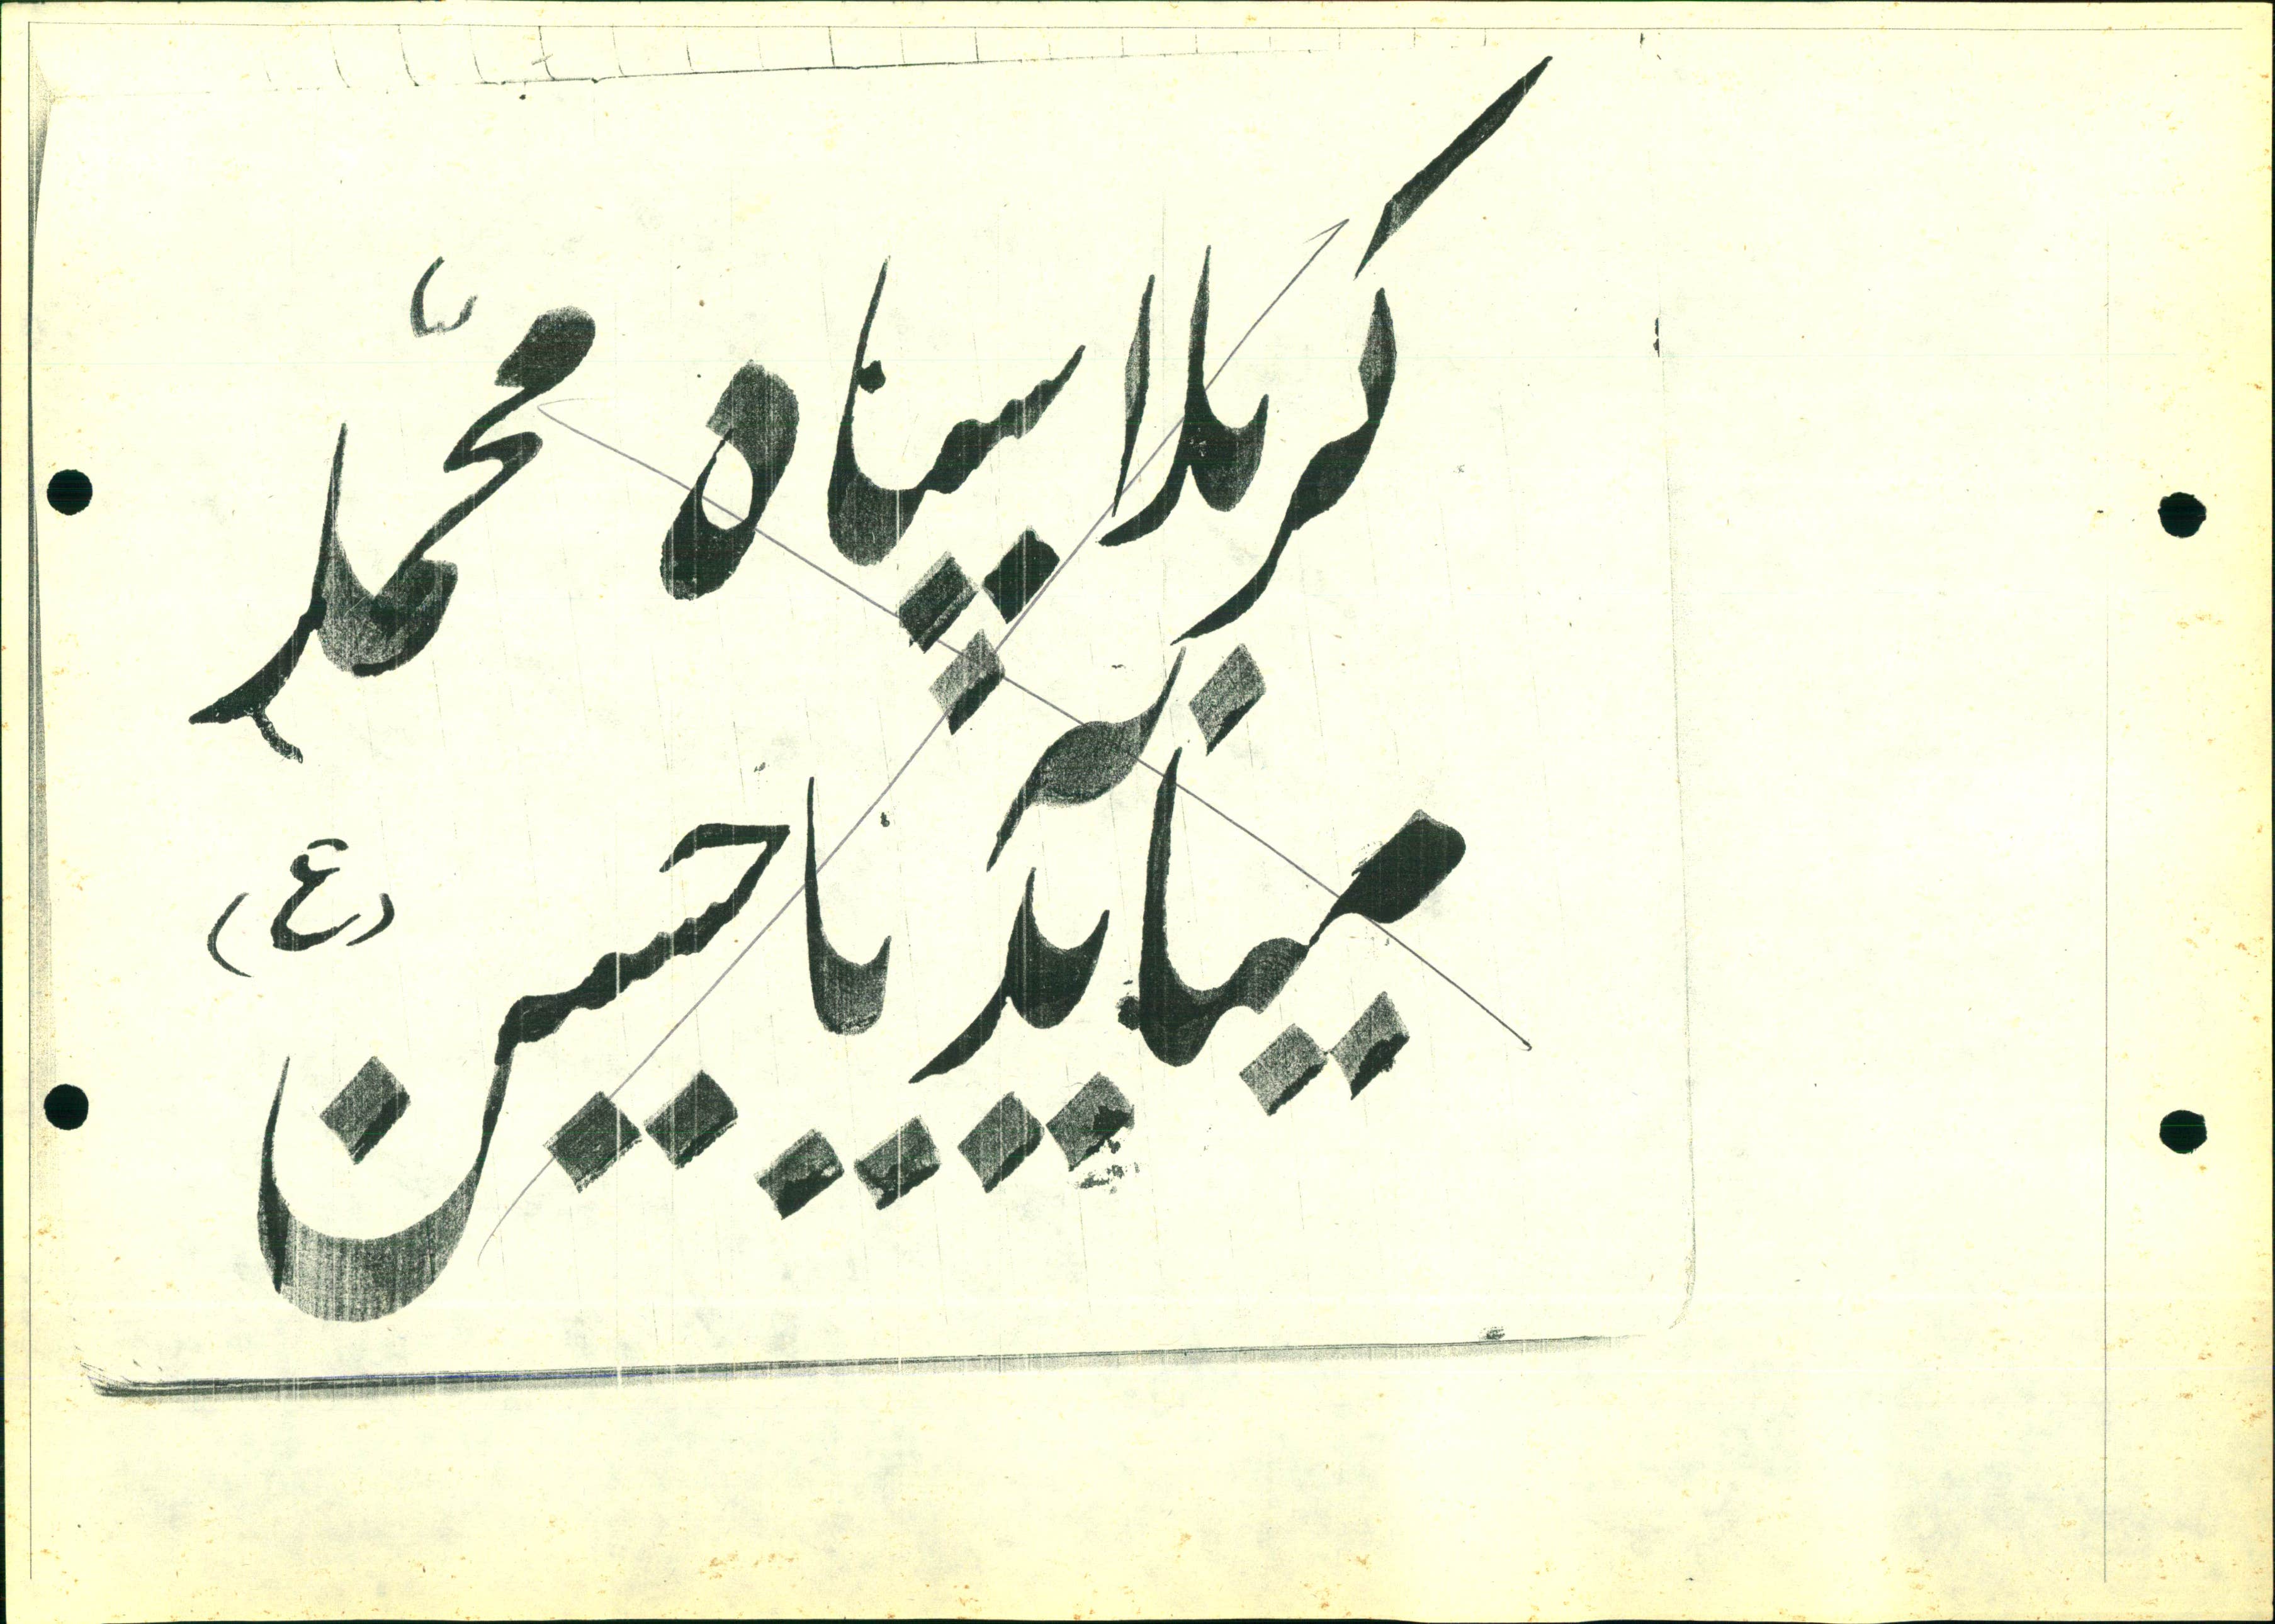 کربلا سپاه محمّد
میآید یا حسین (ع)